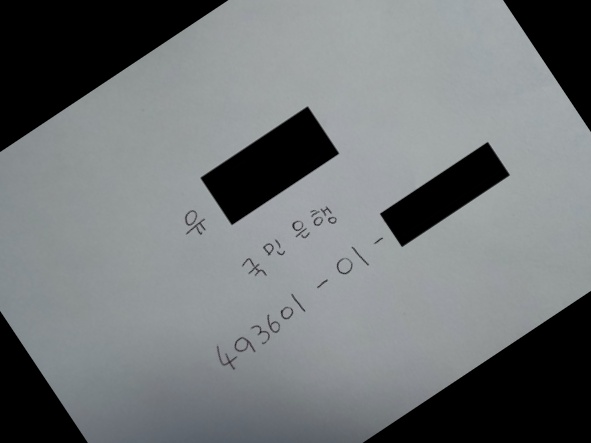 유
국민은행
493601-01-